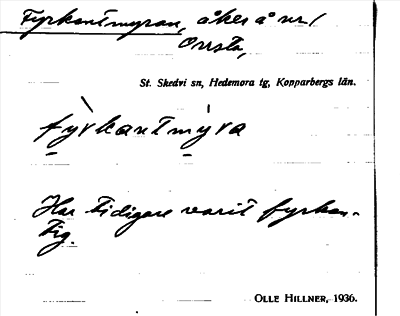 Fyrkantmyran, åker å nr 1
Onsta,
St. Skedvi sn, Hedemora tg, Kopparbergs län.
fỳrkantmýra
Har tidigare varit fyrkan-
tig.
OLLE HILLNER, 1936.